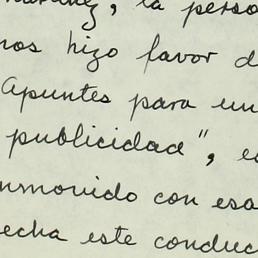 la perso
nos hizo favor d
Apuntes para un
publicidad", e
nmovido con esa
echa este conduc